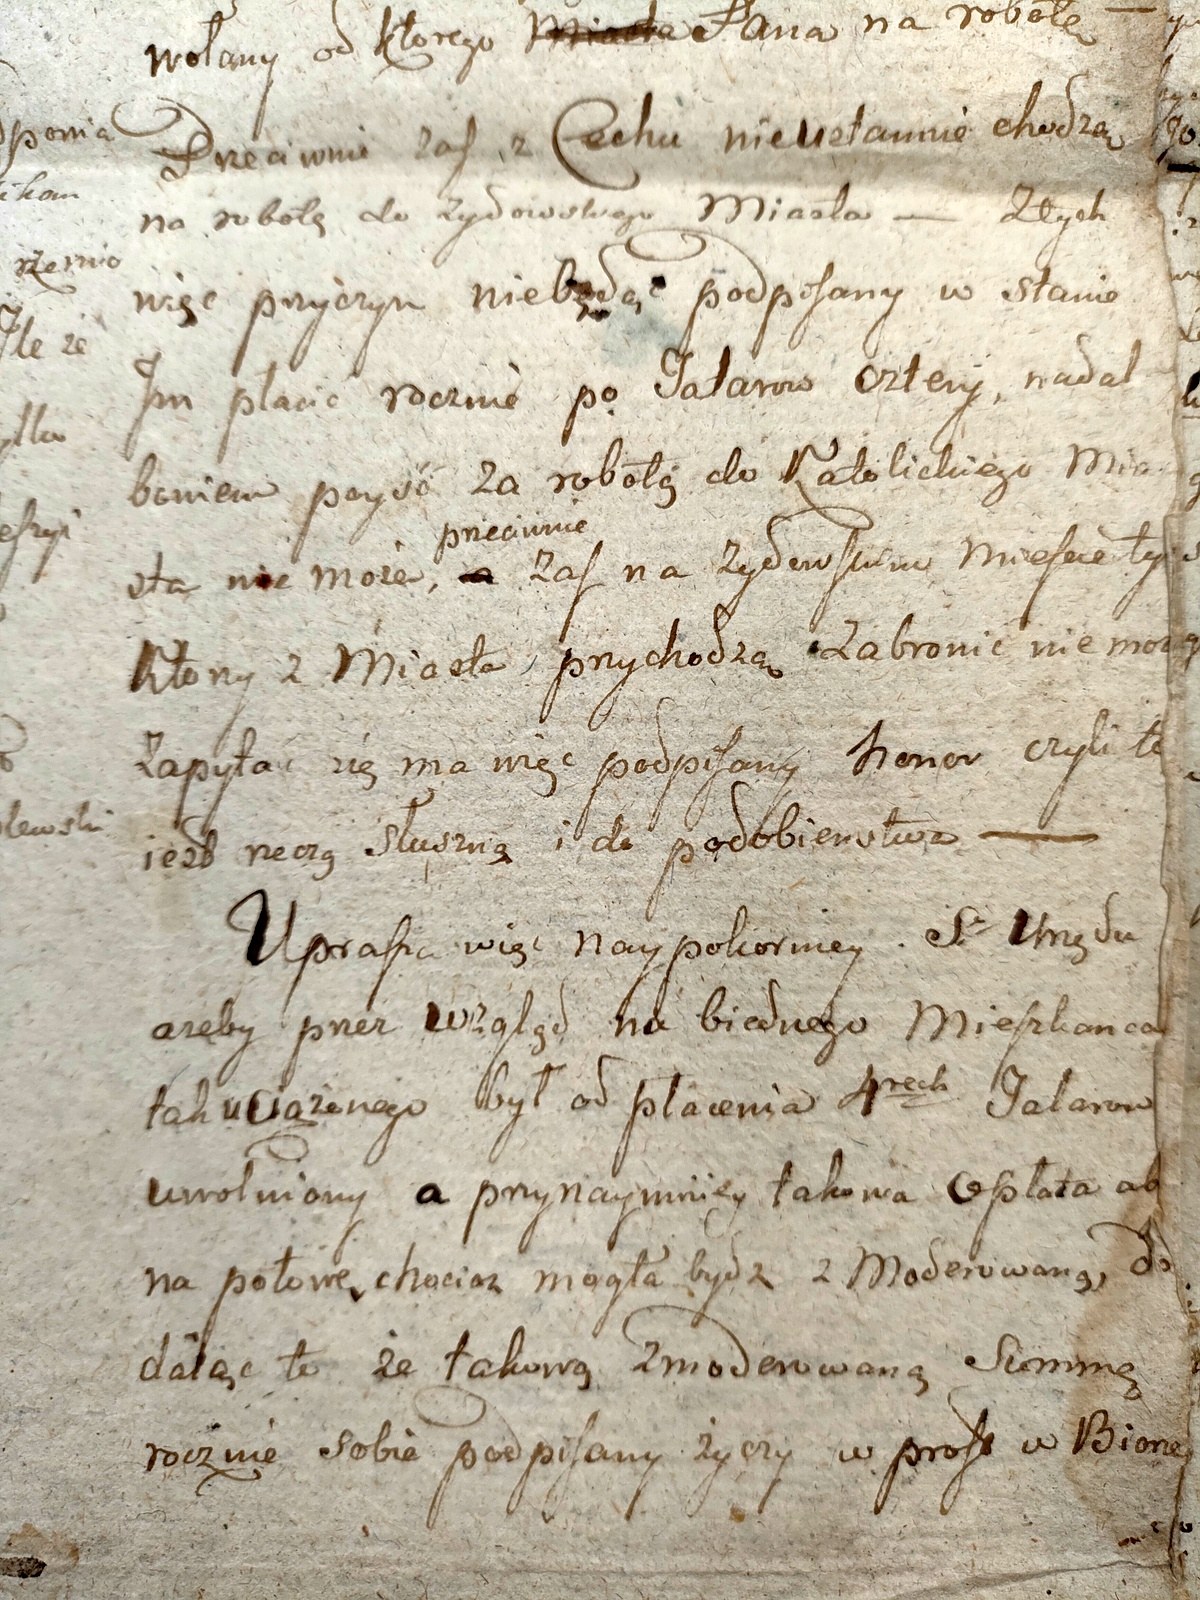 wołany od ktorego Miasta Pana na robotę —
Przeciwnie zaś z Cechu nieustannie chodzą
na robotę do żydowskiego Miasta — Z tych
więc przyczyn niebędąc podpisany w stanie
Im płacić rocznie po Talarow cztery, nadal
boniem poyść za robotą do Katolickiego Mia
sta nie może, a przeciwnie zaś na żydowskim Mieście ty
ktory z Miasta przychodzą zabronić nie może
Zapytać się ma więc podpisany honor czyli to
iest rzeczą słuszną i do podobieństwa —
Uprasza więc naypokorniey. Sr. Urzędu
ażeby przez wzgląd na biednego Mieszkanca
tak uciążonego był od płacenia 4rech Talarow
uwolniony a przynaymniey takowa opłata ab
na połowę chociaz mogła bydz zmoderowaną, do
daiąc to że takową zmoderowaną Summę
rocznie sobie podpisany życzy w prost w Biorze
ponia
ikam
rzemio
Ile że
ylko
eszyi
lewski